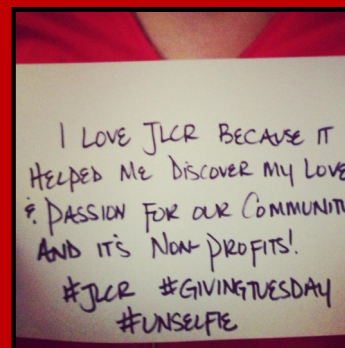 I LOVE JLCR BECAUSE IT
HELPED ME DISCOVER MY LOVE
& PASSION FOR OUR COMMUNITY
AND IT'S NON-PROFITS!
#JLCR #GIVINGTUESDAY
#UNSELFIE